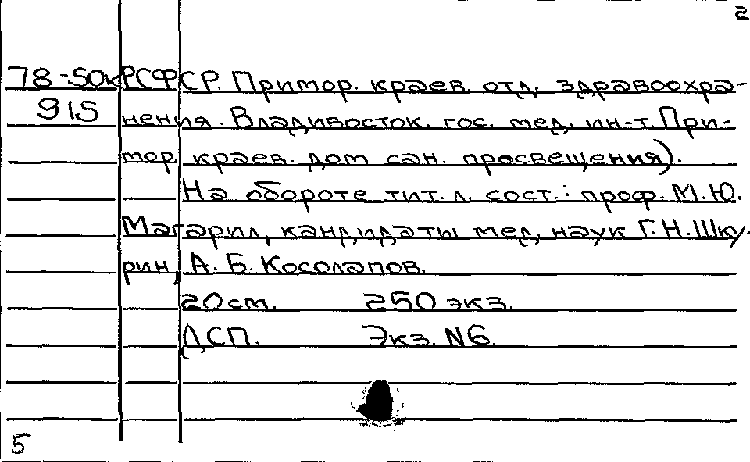 2
78-50к РСФСР. Примор. краев. отд. здравоохра-
915 нения. Владивосток. гос. мед. ин-т. При-
мор. краев. дом сан. просвещения).
На обороте тит. л. сост.: проф. М.Ю.
Магарил, кандидаты мед. наук Г.Н. Шку-
рин, А.Б. Косолапов.
20 см. 250 экз.
ДСП. Экз. №6.
5